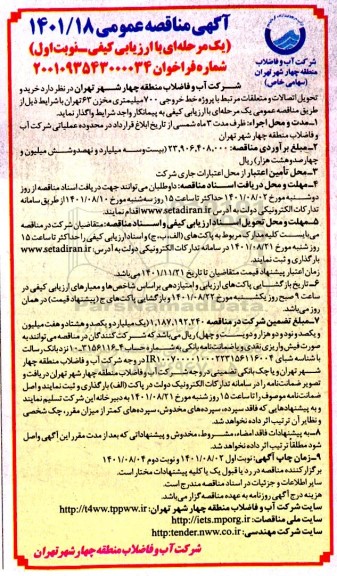 آگهی مناقصه عمومی ۱۴۰۱/۱۸
(یک مرحله‌ای با ارزیابی کیفی-نوبت اول)
شماره فراخوان ۲۰۰۱۰۹۳۵۴۳۰۰۰۰۳۴
شرکت آب و فاضلاب
منطقه چهار شهر تهران
(سهامی خاص)
شرکت آب و فاضلاب منطقه چهار شهر تهران در نظر دارد خرید و
تحویل اتصالات و متعلقات مرتبط با پروژه خط خروجی ۷۰۰ میلیمتری مخزن ۶۳ تهران با شرایط ذیل از
طریق مناقصه عمومی یک مرحله‌ای با ارزیابی کیفی به پیمانکار واجد شرایط واگذار نماید.
۱-مدت و محل اجراء: ظرف مدت ۳ ماه شمسی از تاریخ ابلاغ قرارداد در محدوده عملیاتی شرکت آب
و فاضلاب منطقه چهار شهر تهران
۲-مبلغ برآوردی مناقصه: ۲۳,۹۰۶,۴۰۸,۰۰۰ (بیست و سه میلیارد و نهصد و شش میلیون و
چهارصد و هشت هزار) ریال
۳-محل تأمین اعتبار از محل اعتبارات جاری شرکت
۴-مهلت و محل دریافت اسناد مناقصه: داوطلبان می‌توانند جهت دریافت اسناد مناقصه از روز
دوشنبه مورخ ۱۴۰۱/۰۸/۰۲ حداکثر تا ساعت ۱۵ روز سه شنبه مورخ ۱۴۰۱/۰۸/۱۰ از طریق سامانه
تدارکات الکترونیکی دولت به آدرس www.setadiran.ir اقدام نمایند.
۵-مهلت و محل تحویل اسناد ارزیابی کیفی و اسناد مناقصه: متقاضیان شرکت در مناقصه
می‌بایست کلیه مدارک مربوط به پاکت‌های (الف، ب، ج) و اسناد ارزیابی کیفی را حداکثر تا ساعت ۱۵
روز شنبه مورخ ۱۴۰۱/۰۸/۲۱ در سامانه تدارکات الکترونیکی دولت به آدرس www.setadiran.ir
بارگذاری و ثبت نمایند.
زمان اعتبار پیشنهاد قیمت متقاضیان تا تاریخ ۱۴۰۱/۱۱/۲۱ می‌باشد.
۶-تاریخ بازگشایی پاکت‌های ارزیابی و امتیازدهی براساس شاخص‌ها و معیارهای ارزیابی کیفی در
ساعت ۹ صبح روز یکشنبه مورخ ۱۴۰۱/۰۸/۲۲ و بازگشایی پاکت‌های ج (پیشنهاد قیمت) در همان
روز می‌باشد.
۷-مبلغ تضمین شرکت در مناقصه ۱,۱۸۷,۱۹۲,۲۴۰ (یک میلیارد و یکصد و هشتاد و هفت میلیون
و یکصد و نود و دو هزار و دویست و چهل) ریال می‌باشد که شرکت کنندگان در مناقصه می‌توانند به
صورت فیش واریز نقدی و یا ضمانتنامه بانکی به شماره حساب
با شناسه شبای در وجه شرکت آب و فاضلاب منطقه چهار
شهر تهران و یا چک بانکی تضمینی در وجه شرکت آب و فاضلاب منطقه چهار شهر تهران دریافت و
تصویر ضمانت‌نامه را در سامانه تدارکات الکترونیک دولت در پاکت (الف) بارگذاری و ثبت نمایند و اصل
ضمانت‌نامه موصوف را تا ساعت ۱۵ روز شنبه مورخ ۱۴۰۱/۰۸/۲۱ به دبیرخانه این شرکت تسلیم نمایند
و به پیشنهادهایی که فاقد سپرده، سپرده‌های مخدوش، سپرده‌های کمتر از میزان مقرر، چک شخصی
و نظایر آن ترتیب اثر داده نخواهد شد.
۸-به پیشنهادات فاقد امضاء، مشروط، مخدوش و پیشنهاداتی که بعد از مدت مقرر این آگهی واصل
شود مطلقاً ترتیب اثر داده نخواهد شد.
۹-زمان چاپ آگهی: نوبت اول ۱۴۰۱/۰۸/۰۲ و نوبت دوم ۱۴۰۱/۰۸/۰۴
برگزار کننده مناقصه در رد یا قبول یک یا کلیه پیشنهادات مختار است.
سایر اطلاعات و جزئیات در اسناد مناقصه مندرج است.
هزینه درج آگهی روزنامه به عهده مناقصه گزار می‌باشد.
سایت شرکت آب و فاضلاب منطقه چهار شهر تهران: http://t4ww.tppww.ir
سایت ملی مناقصات: http://iets.mporg.ir
سایت شرکت مهندسی: http:tender.nww.co.ir
شرکت آب و فاضلاب منطقه چهار شهر تهران